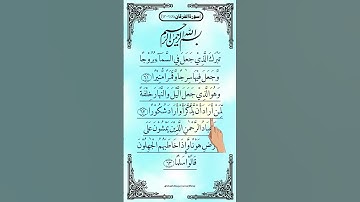 بسم الله الرحمن الرحيم
تَبَٰرَكَ ٱلَّذِي جَعَلَ فِي ٱلسَّمَآءِ بُرُوجٗا
وَجَعَلَ فِيهَا سِرَٰجٗا وَقَمَرٗا مُّنِيرٗا ٦١
وَهُوَ ٱلَّذِي جَعَلَ ٱلَّيۡلَ وَٱلنَّهَارَ خِلۡفَةٗ
لِّمَنۡ أَرَادَ أَن يَذَّكَّرَ أَوۡ أَرَادَ شُكُورٗا ٦٢
ٱلرَّحۡمَٰنِ ٱلَّذِينَ يَمۡشُونَ عَلَى
هَوۡنٗا وَإِذَا خَاطَبَهُمُ ٱلۡجَٰهِلُونَ
قَالُواْ سَلَٰمٗا ٦٣